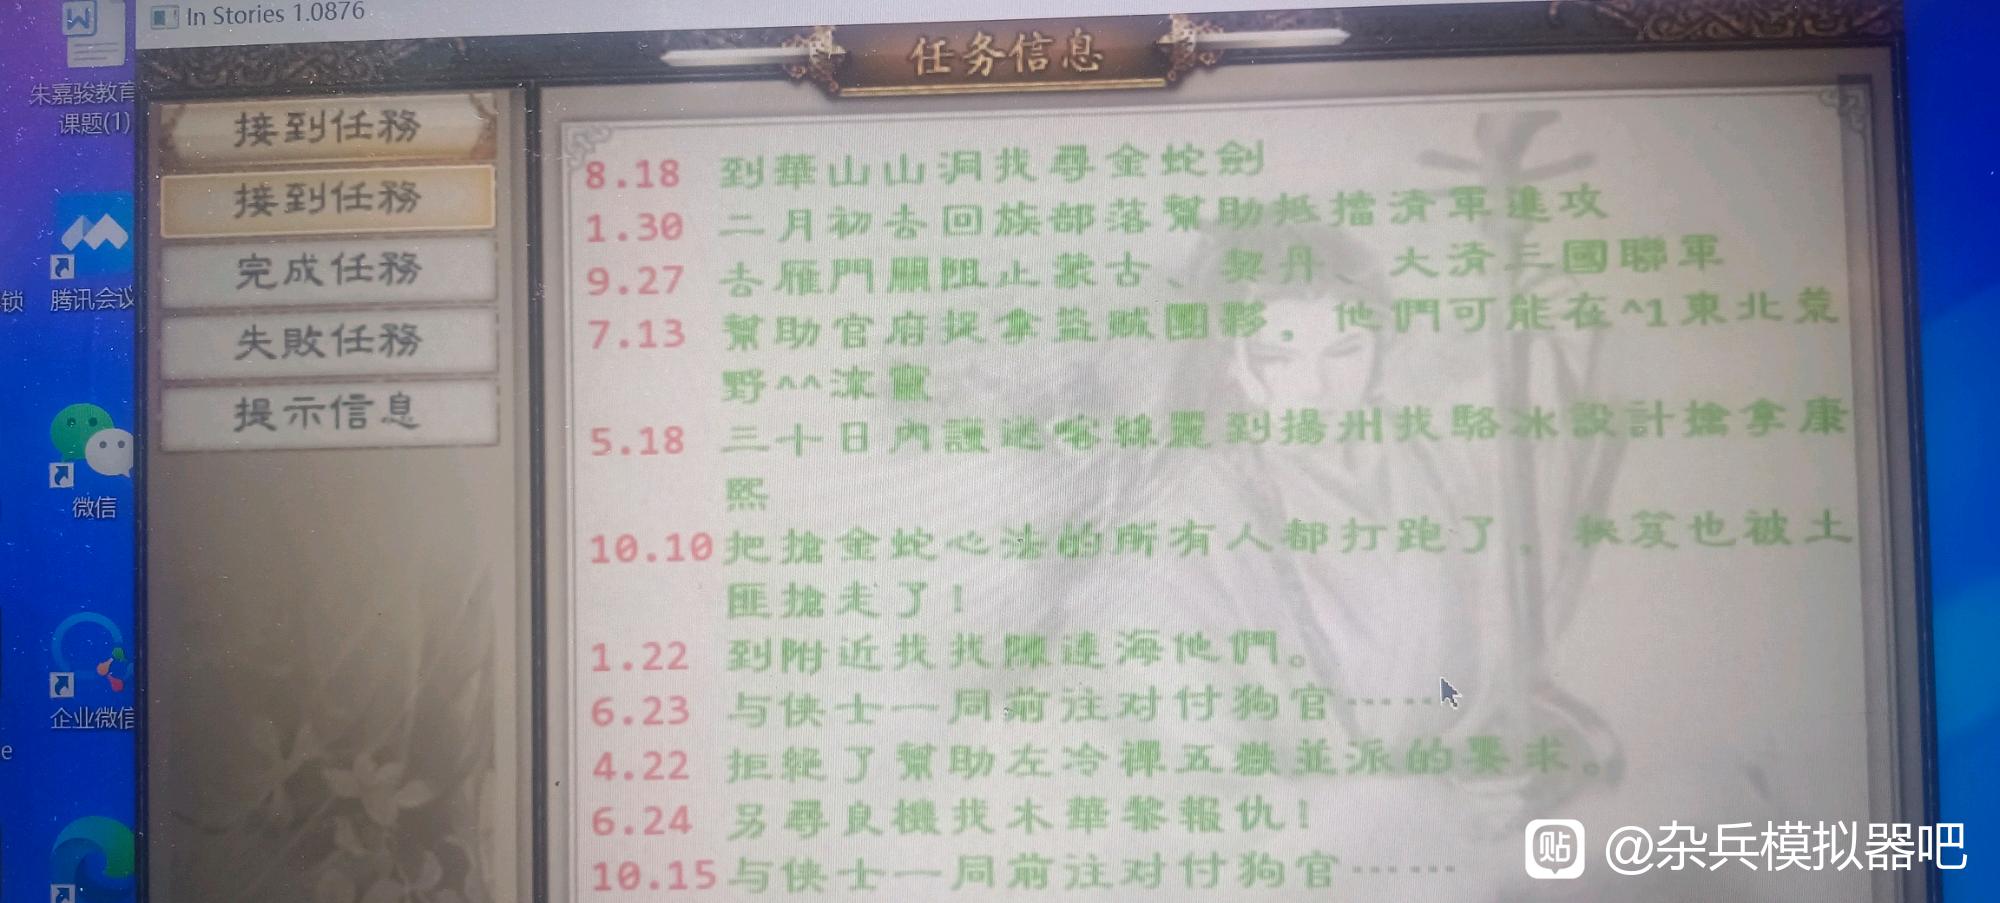 In Stories 1.0876
任务信息
朱嘉骏教育
课题(1)
锁
腾讯会议
微信
企业微信
e
接到任務
接到任務
完成任務
失敗任務
提示信息
8.18 到華山山洞找尋金蛇劍
1.30 二月初去回族部落幫助抵擋清軍進攻
9.27 去雁門關阻止蒙古、契丹、大清三國聯軍
7.13 幫助官府捉拿盜賊團夥，他們可能在^1東北荒
野^^流竄
5.18 三十日內護送喀絲麗到揚州找駱冰設計擒拿康
熙
10.10 把搶金蛇心法的所有人都打跑了，秘笈也被土
匪搶走了！
1.22 到附近找找陳達海他們。
6.23 与侠士一同前往对付狗官……
4.22 拒絕了幫助左冷禪五嶽並派的要求。
6.24 另尋良機找木華黎報仇！
10.15 与侠士一同前往对付狗官……
贴 @杂兵模拟器吧